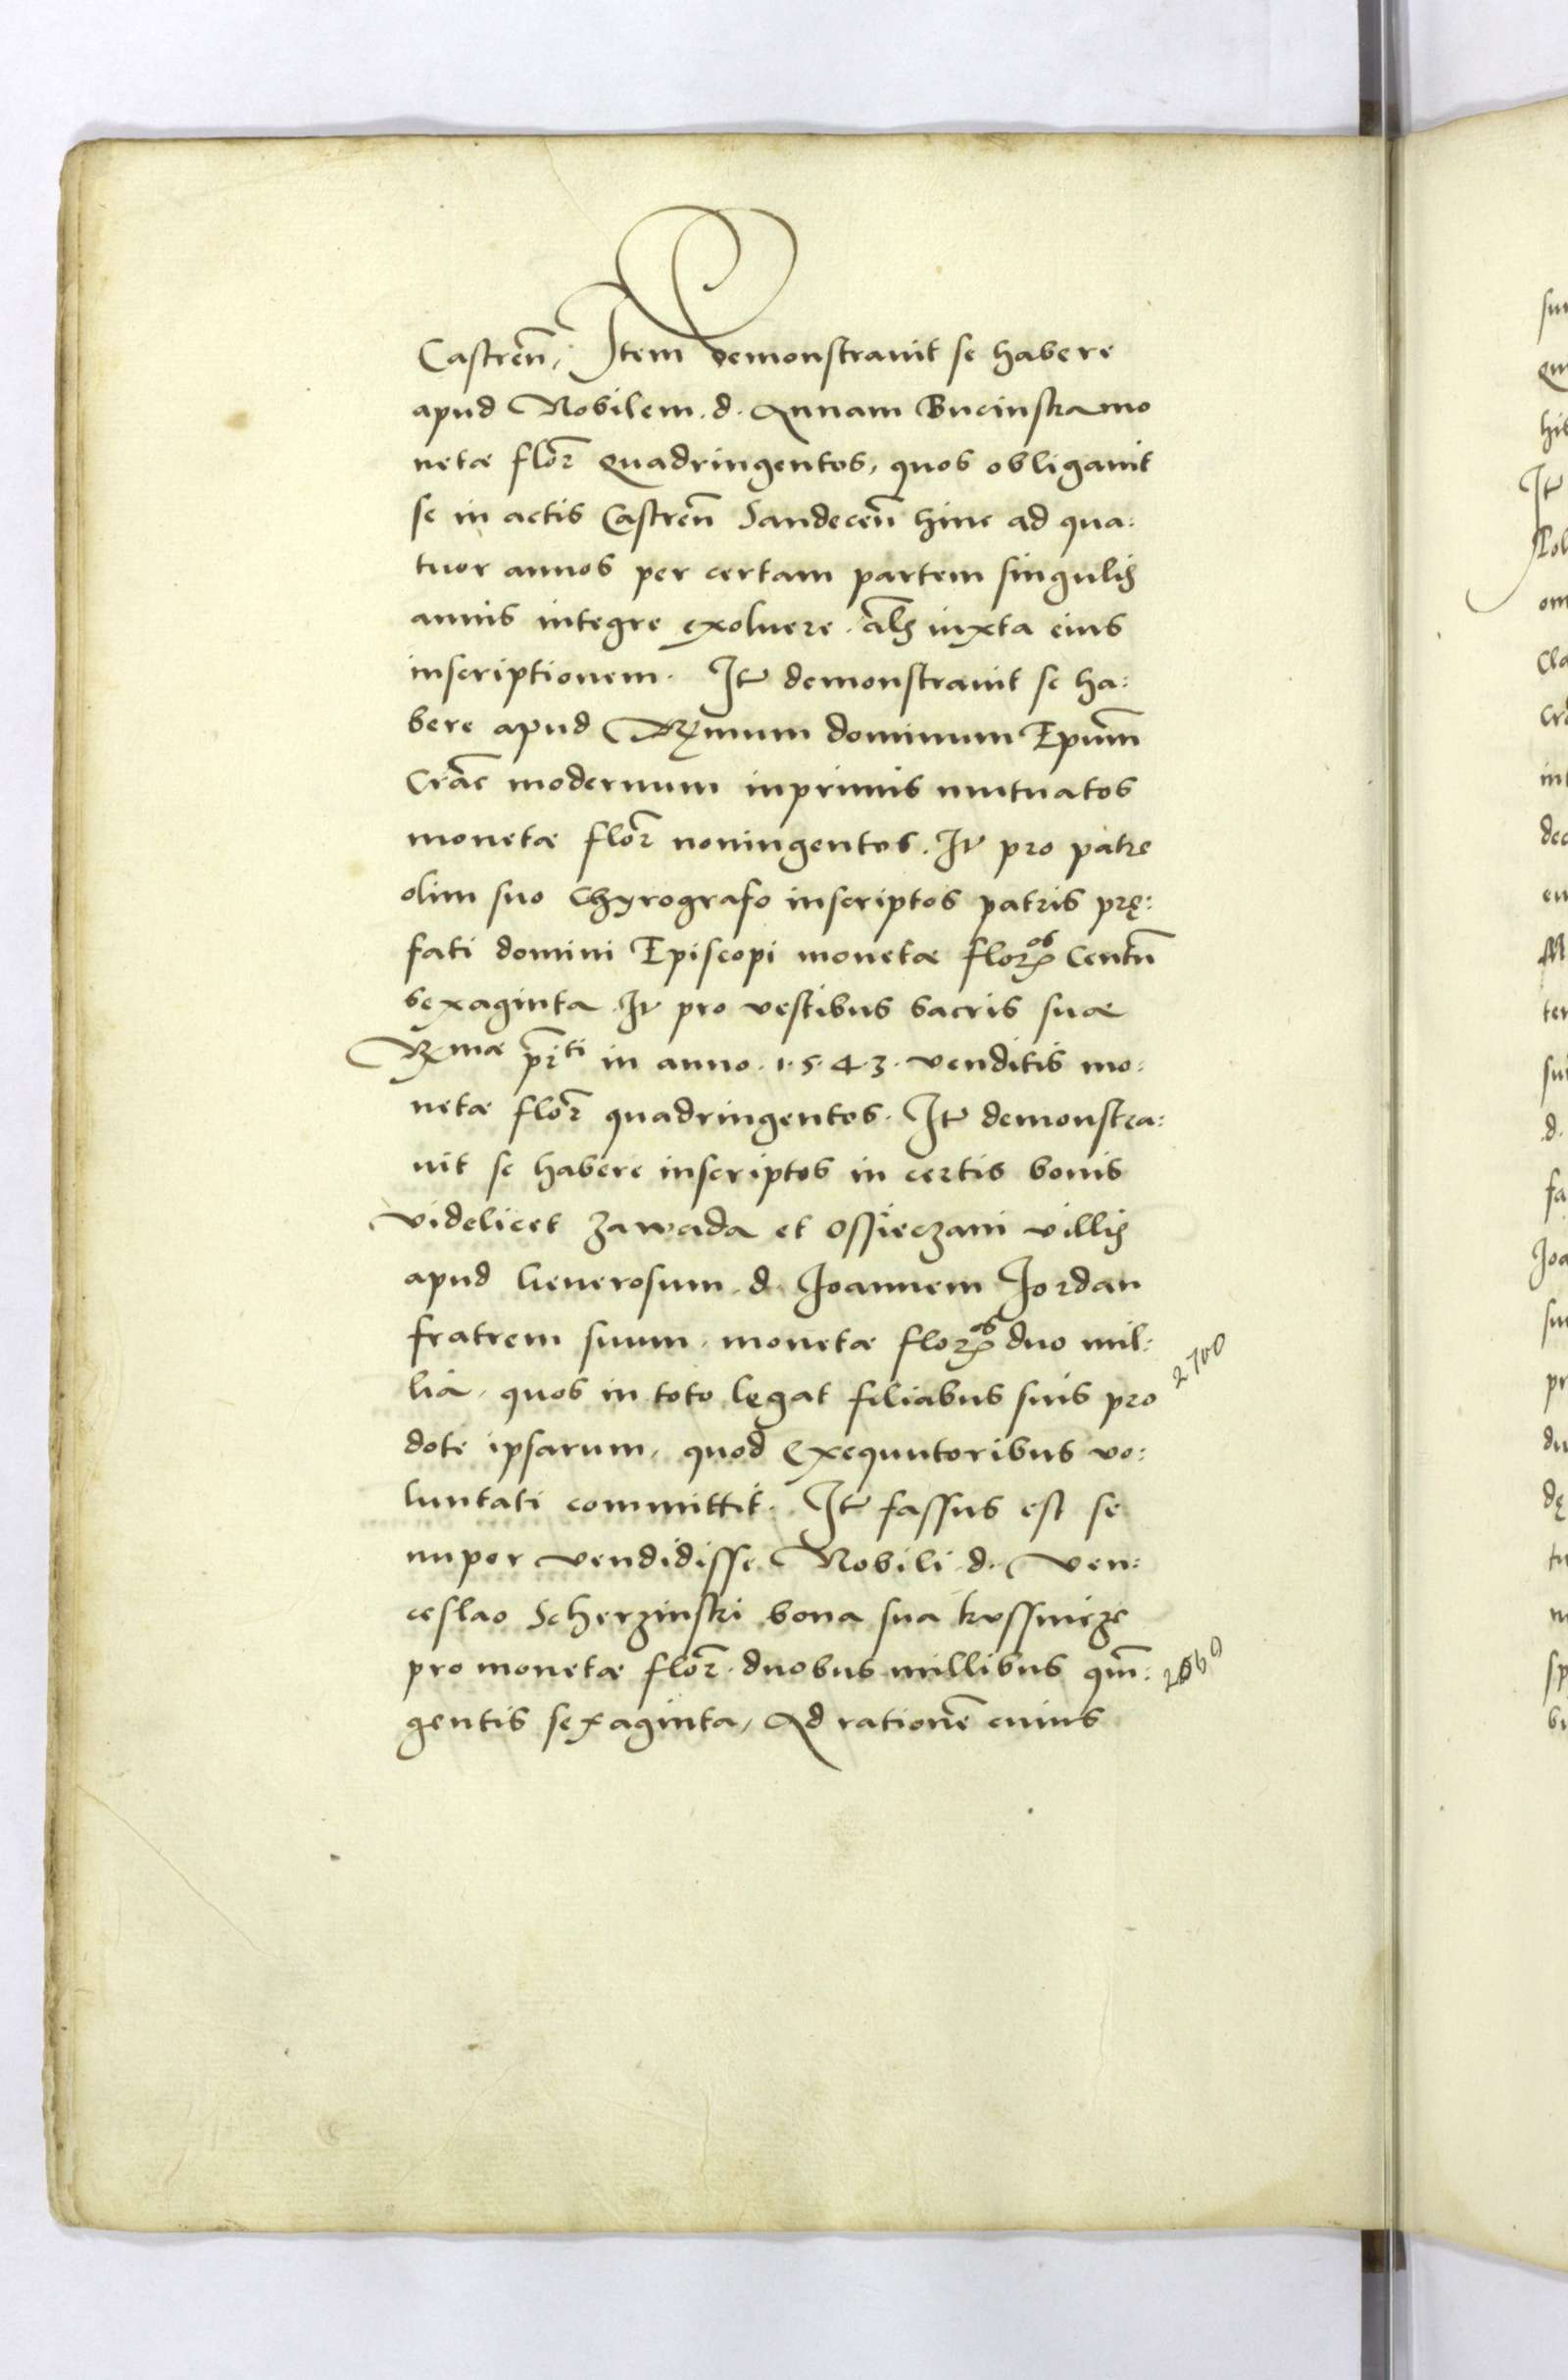 Castreñ, Item demonstrauit se habere
apud Nobilem. d. Annam Bucinska mo
netæ floř quadringentos, quos obligauit
se in actis Castreñ Sandeceñ hinc ad qua:
tuor annos per certam partem singulis
annis integre exoluere. als iuxta eius
inscriptionem. It demonstrauit se ha:
bere apud Rmum dominum Epum
Crac modernum inprimis mutuatos
monetæ floř noningentos. It pro patre
olim suo Chyrografo inscriptos patris prę:
fati domini Episcopi monetæ floros Centũ
sexaginta It pro vestibus sacris suæ
Rmæ prti in anno. 1.5.4.3. venditis mo:
netæ floř quadringentos. It demonstra:
uit se habere inscriptos in certis bonis
videlicet Zawada et Ossieczani villis
apud Generosum. d. Ioannem Iordan
fratrem suum. monetæ floros duo mil:
lia. quos in toto legat filiabus suis pro
2700
dote ipsarum, quod Exequutoribus vo:
luntati committit. It fassus est se
nuper vendidisse Nobili. d. Ven:
ceslao Scherzinski bona sua
pro monetæ floř. duobus millibus qm̃:
gentis sexaginta, Ad rationẽ cuius